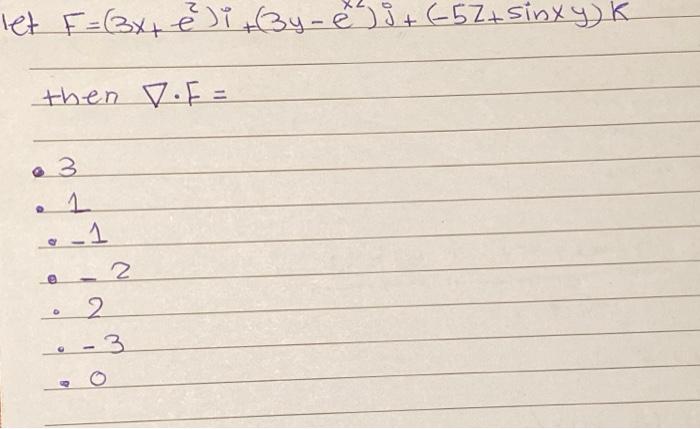 let F=(3x+e²)i+(3y-e^xz)j+(-5z+sinxy)K
then ∇·F=
• 3
• 1
• -1
• - 2
• 2
• - 3
• 0